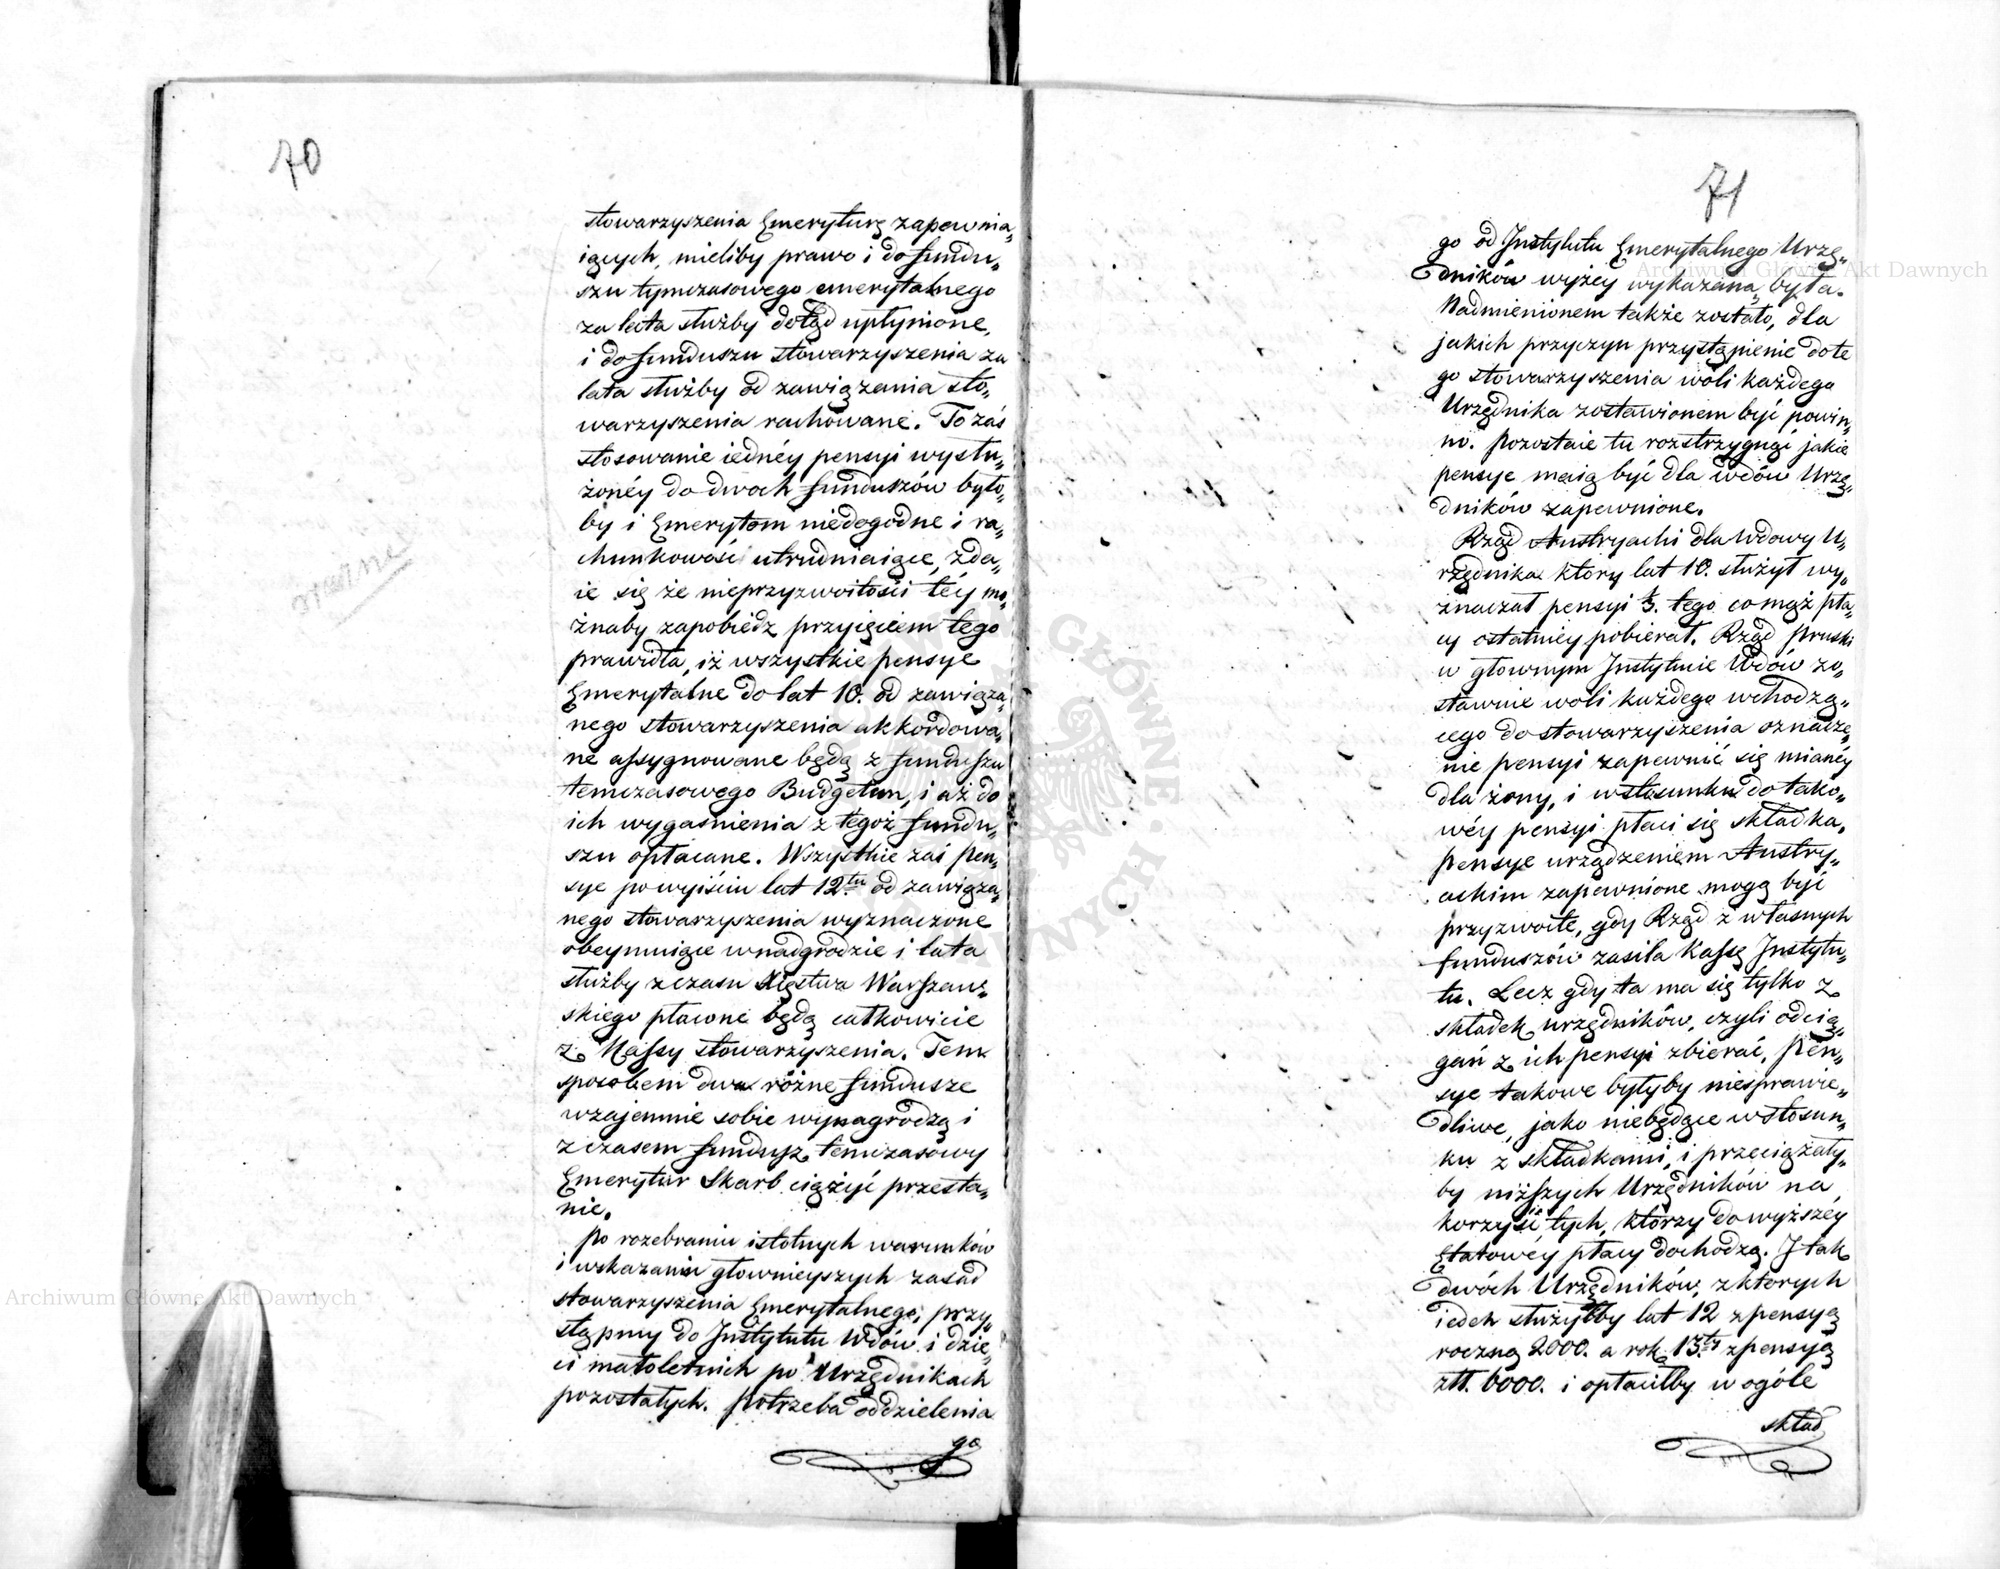 70
stowarzyszenia Emeryturę zapewnia„
iących, mieliby prawo i do fundu„
szu tymczasowego emerytalnego
za lata służby dotąd upłynione,
i do funduszu stowarzyszenia za
lata służby od zawiązania sto„
warzyszenia rachowane. To zaś
stosowanie iednéy pensyi wysłu„
żonéy do dwóch funduszów było„
by i Emerytom niedogodne i ra„
chunkowość utrudniaiące, zda„
ie się że nieprzyzwoitości téy mo„
żnaby zapobiedz przyięciem tego
prawidła, iż wszystkie pensye
Emerytalne do lat 10. od zawiąza„
nego stowarzyszenia akkordowa„
ne assygnowane będą z funduszu
temczasowego Budgetem, i aż do
ich wygaśnienia z tegoż fundu„
szu opłacane. Wszystkie zaś pen„
sye po wyiściu lat 12tu od zawiąza„
nego stowarzyszenia wyznaczone
obeymuiące w nadgrodzie i lata
służby z czasu Xięstwa Warszaw„
skiego płacone będą całkowicie
z Kassy stowarzyszenia. Tem
sposobem dwa różne fundusze
wzajemnie sobie wynagrodzą i
z czasem fundusz temczasowy
Emerytur Skarb ciążyć przesta„
nie.
Po rozebraniu istotnych warunków
i wskazaniu głównieyszych zasad
stowarzyszenia Emerytalnego, przy„
stąpmy do Instytutu Wdów i dzie„
ci małoletnich po Urzędnikach
pozostałych. Potrzeba oddzielenia
go
71
go od Instytutu Emerytalnego Urzę„
dników wyżey wykazaną była.
Nadmienionem także zostało, dla
jakich przyczyn przystąpienie do te
go stowarzyszenia woli każdego
Urzędnika zostawionem być powin„
no. Pozostaie tu rozstrzygnąć jakie
pensye maią być dla wdów Urzę„
dników zapewnione.
Rząd Austryacki dla Wdowy U„
rzędnika który lat 10. służył wy„
znaczał pensyi ⅓. tego co mąż pła„
cy ostatniey pobierał. Rząd Pruski
w głownym Instytucie Wdów zo„
stawuie woli każdego wchodzą„
cego do stowarzyszenia oznacze„
nie pensyi zapewnić się mianéy
dla żony, i w stosunku do tako„
wéy pensyi płaci się składka.
Pensye urządzeniem Austry„
ackim zapewnione mogą być
przyzwoite, gdy Rząd z własnych
funduszów zasila Kassę Instytu„
tu. Lecz gdy ta ma się tylko z
składek urzędników, czyli odcią„
gań z ich pensyi zbierać, pen„
sye takowe byłyby niesprawie„
dliwe, jako niebędące w stosun„
ku z składkami, i przeciążały„
by niższych Urzędników na
korzyść tych, którzy do wyższéy
Etatowéy płacy dochodzą. I tak
dwóch Urzędników, z ktorych
ieden służyłby lat 12 z pensyą
roczną 2000. a rok 13.ty z pensyą
złł. 6000. i opłaciłby w ogóle
skład
Archiwum Główne Akt Dawnych
Archiwum Główne Akt Dawnych